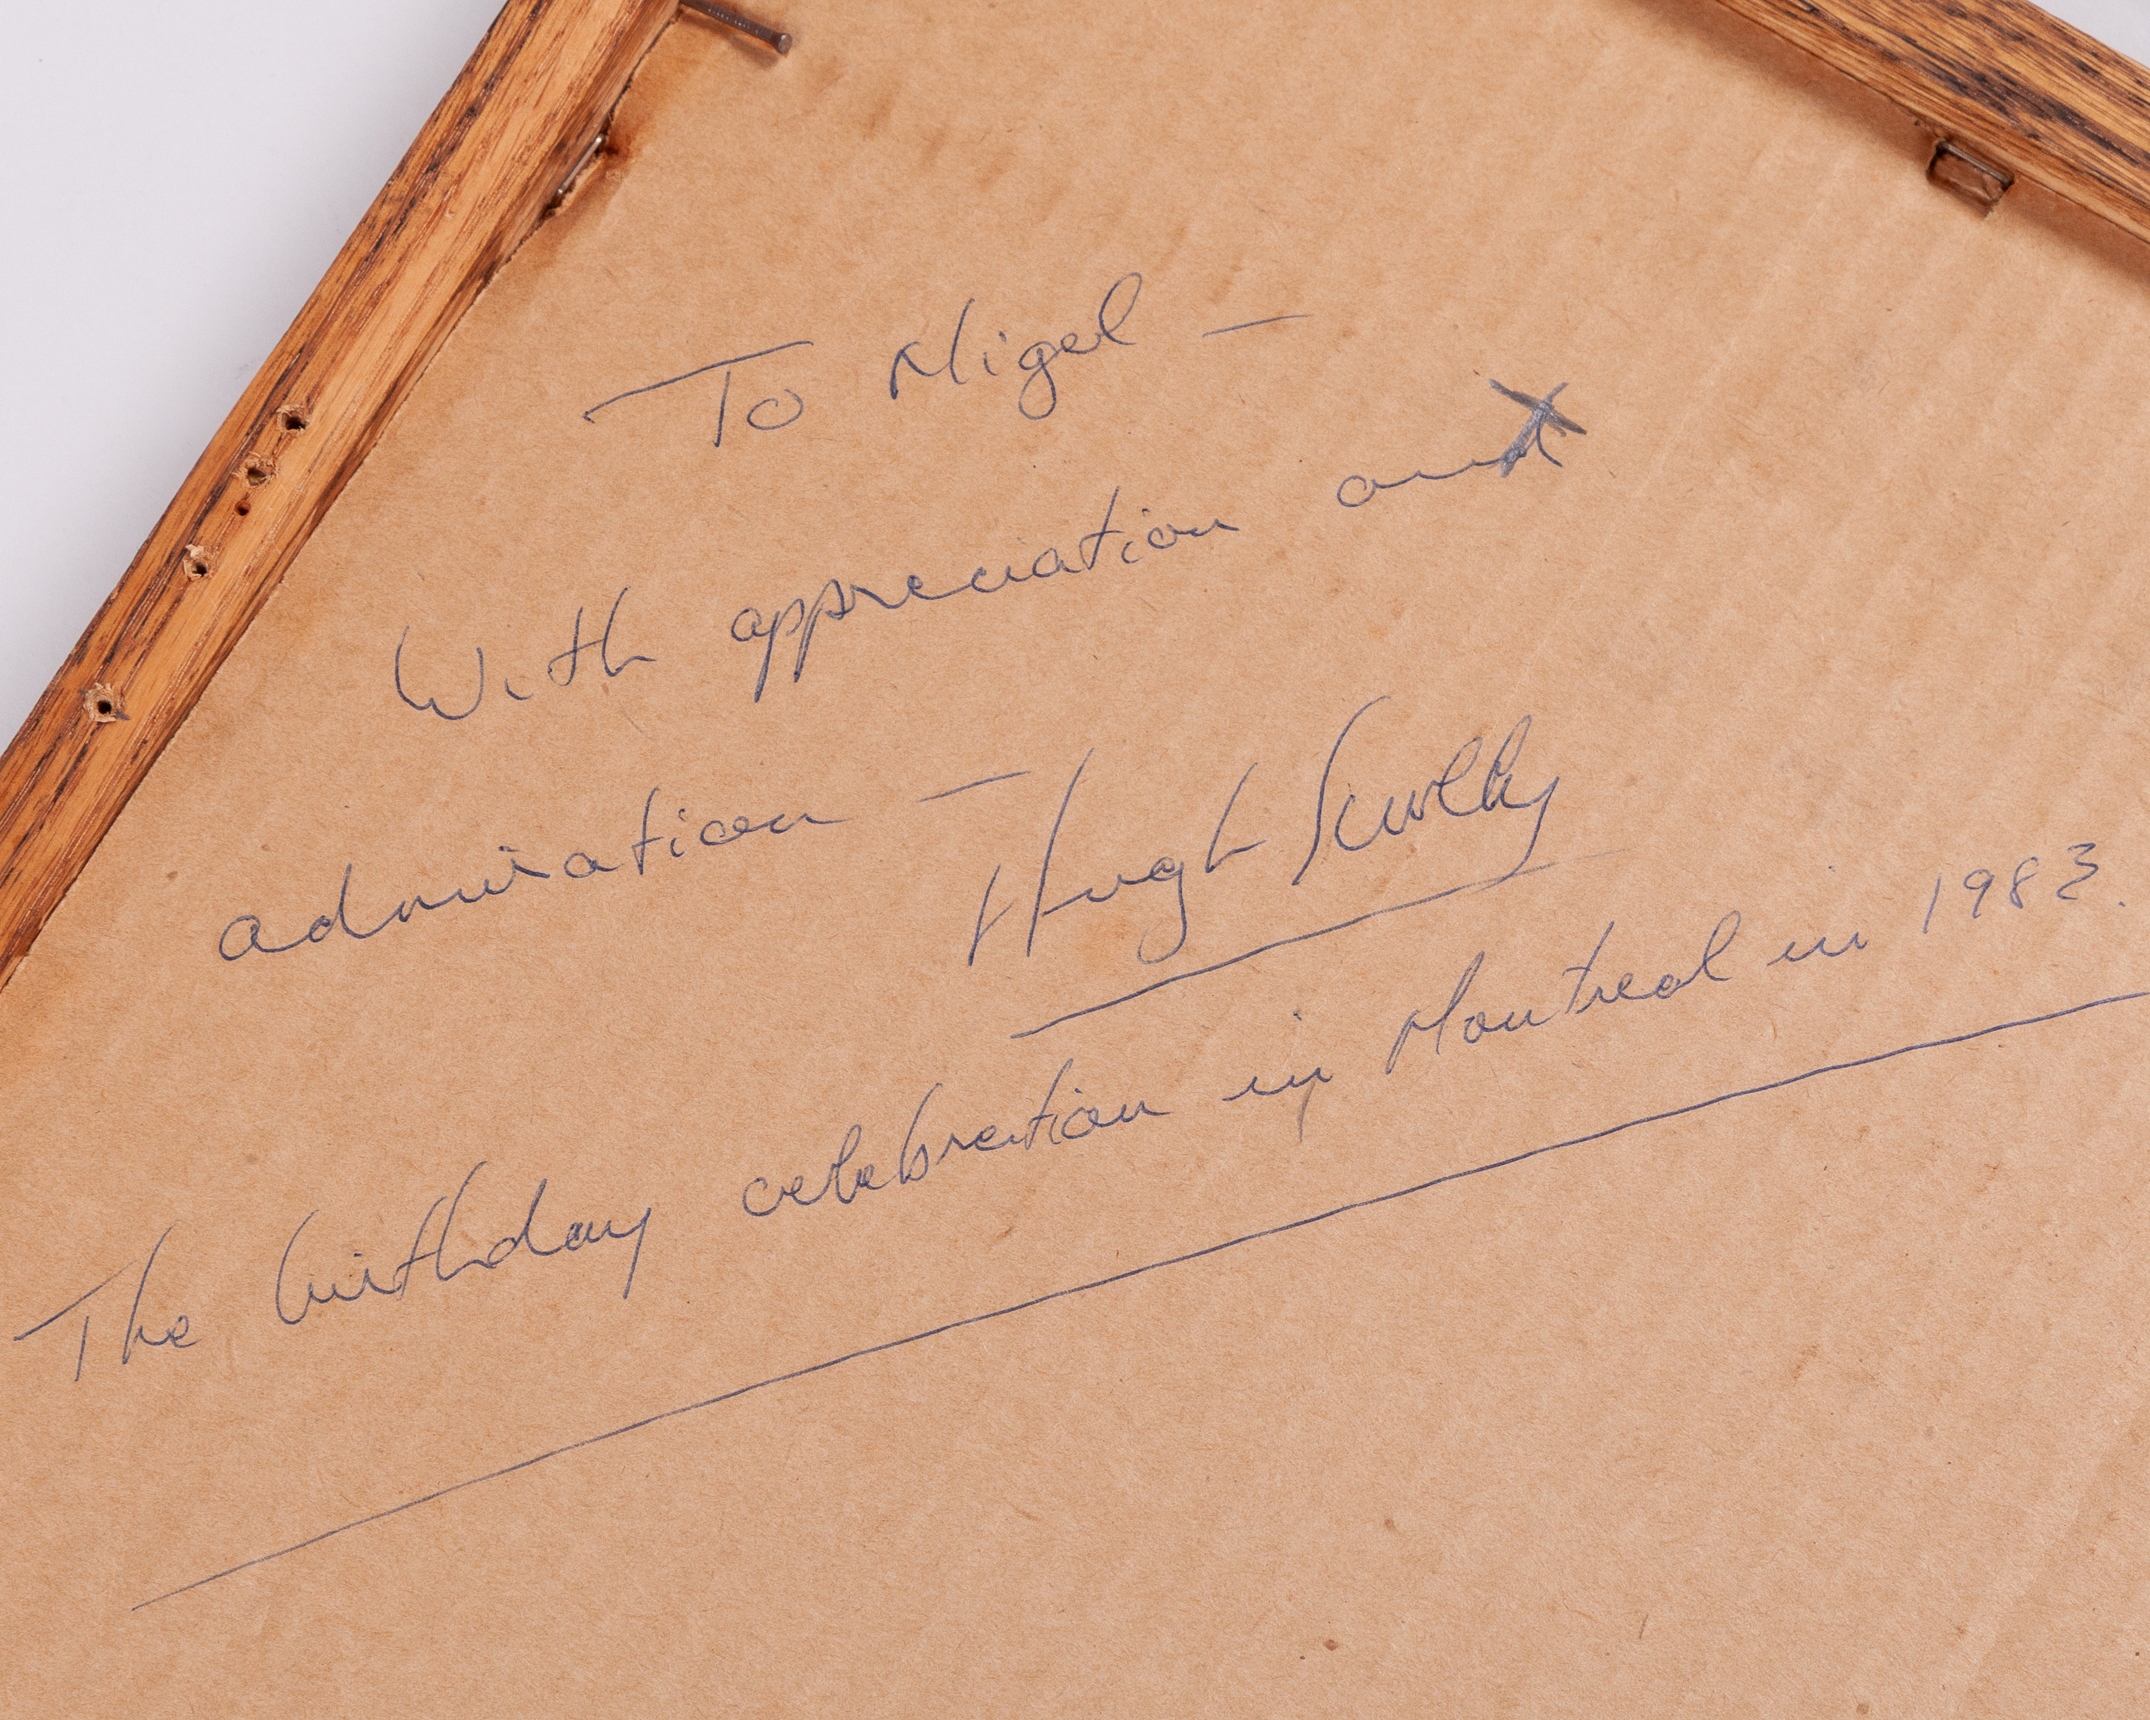 To Nigel —
With appreciation and
admiration —
Hugh Scully
The birthday celebration in Montreal in 1983.